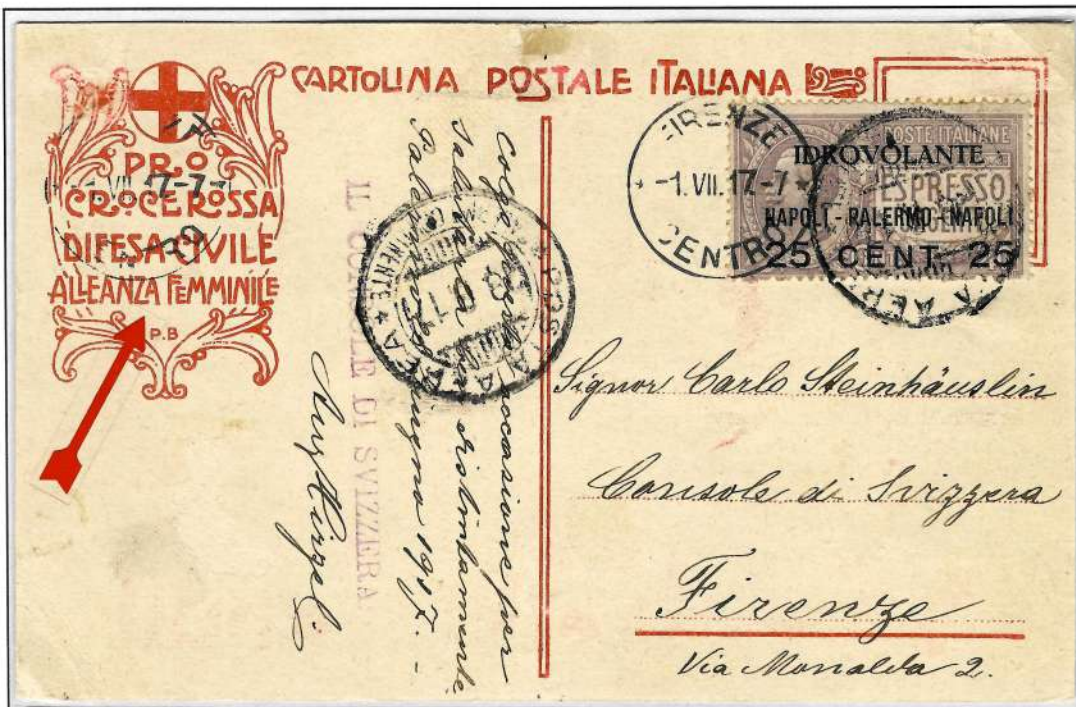 CARTOLINA POSTALE ITALIANA
PRO
CROCE ROSSA
DIFESA CIVILE
ALLEANZA FEMMINILE
P.B
FIRENZE
-1.VII.17.-7
CENTRO
POSTE ITALIANE
ESPRESSO
IDROVOLANTE
NAPOLI - PALERMO - NAPOLI
25 CENT 25
VII.17-7
POSTA AEREA
IL CONSOLE DI SVIZZERA
Colgo occasione per
salutarla distintamente
Palermo giugno 1917. -
Signor Carlo Steinhäuslin
Console di Svizzera
Firenze
Via Monalda 2.